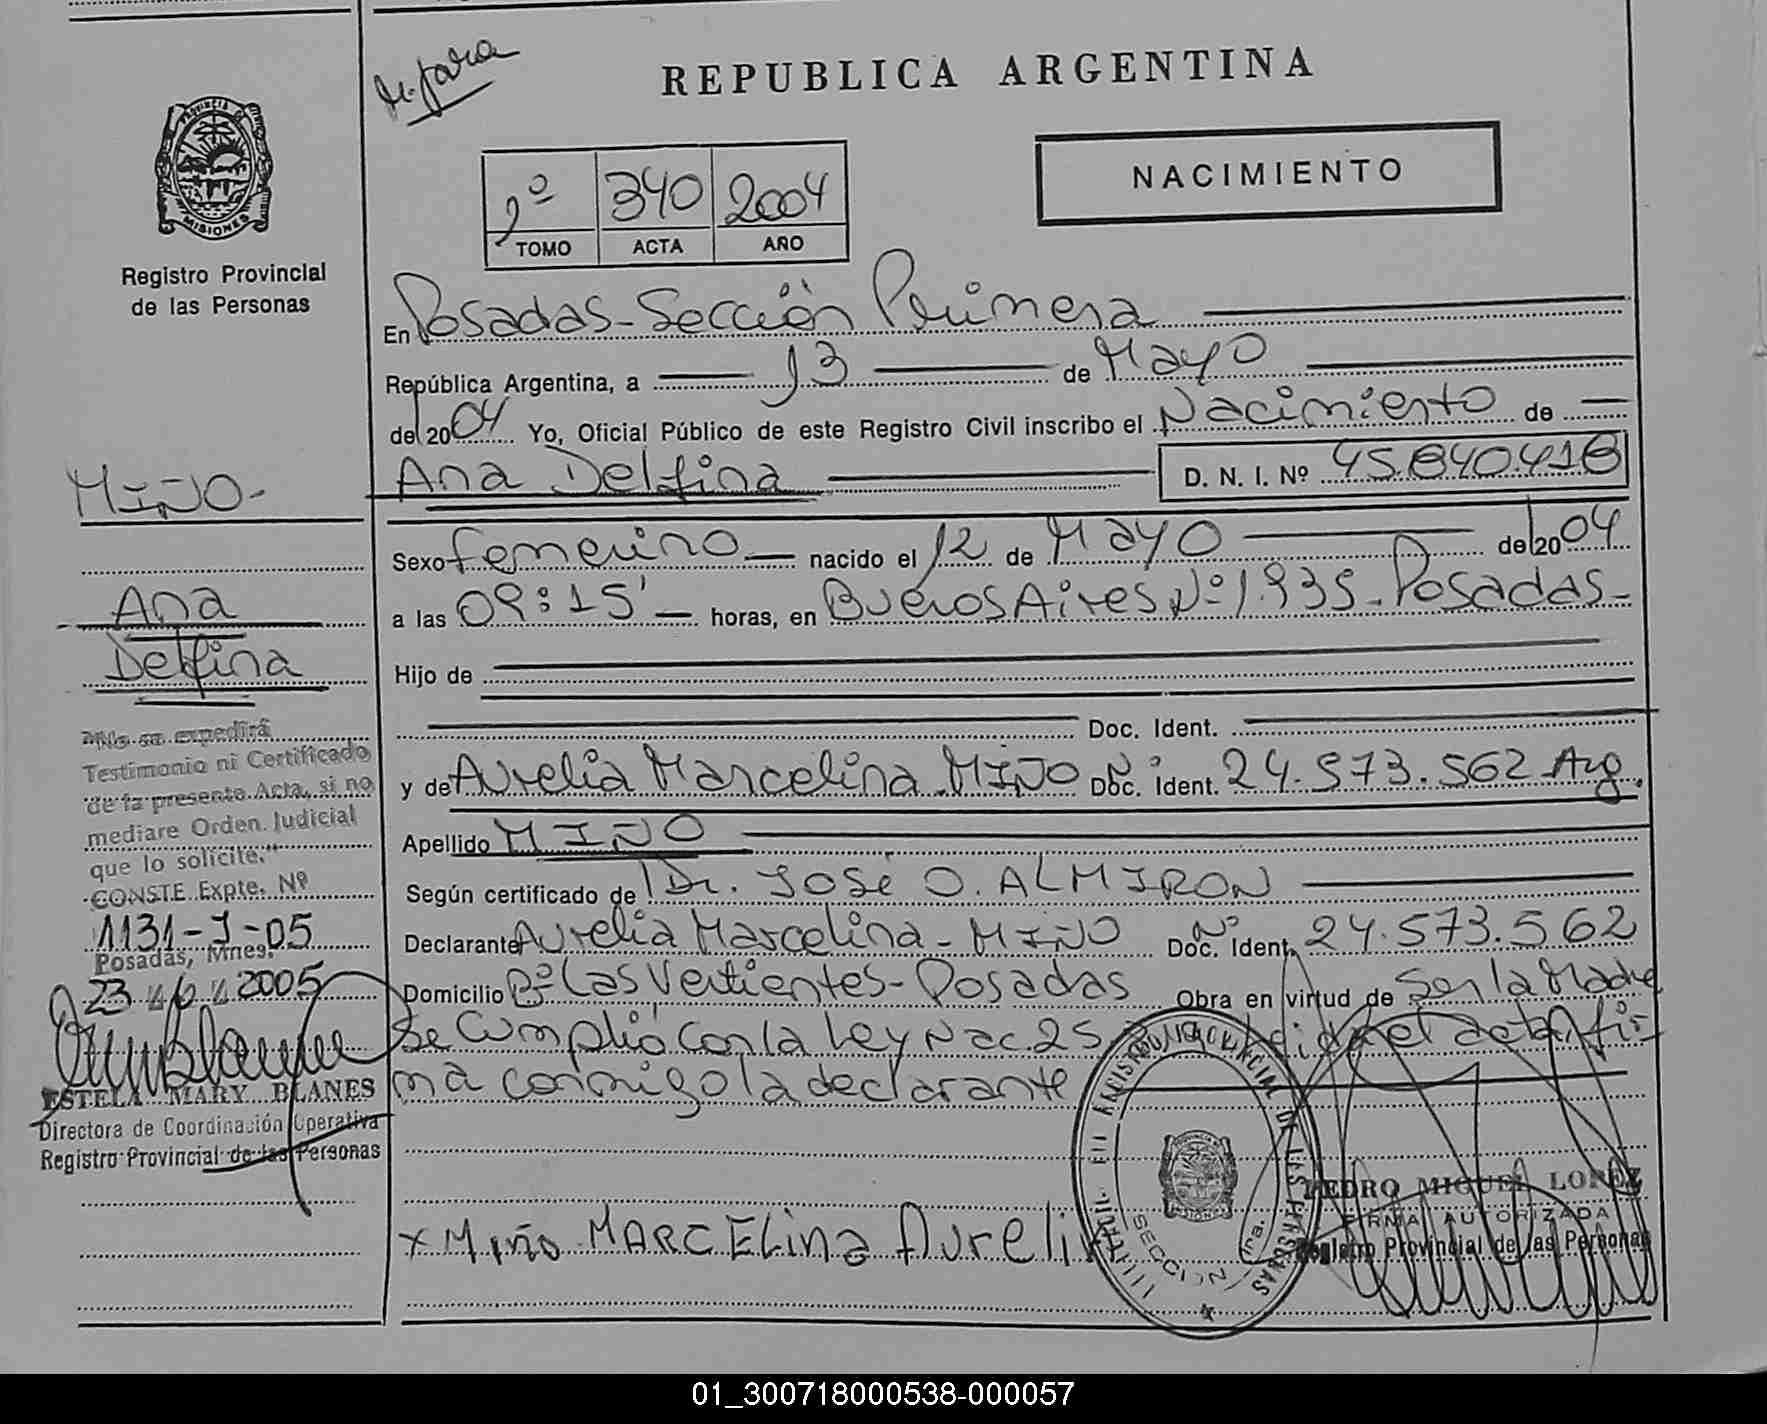 REPUBLICA ARGENTINA
NACIMIENTO
340 2004
TOMO ACTA AÑO
PROVINCIA DE MISIONES
Registro Provincial
de las Personas
En Posadas - Sección Primera
República Argentina, a 13 de Mayo
de 2004 Yo, Oficial Público de este Registro Civil inscribo el Nacimiento de
Ana Delfina D. N. I. Nº 45.840.418
Sexo femenino nacido el 12 de Mayo de 2004
a las 09:15' horas, en Buenos Aires Nº 1.935 - Posadas -
Hijo de
Doc. Ident.
y de Aurelia Marcelina MIÑO Nº Doc. Ident. 24.573.562 Arg.
Apellido MIÑO
Según certificado de Dr. JOSÉ O. ALMIRON
Declarante Aurelia Marcelina - MIÑO Nº Doc. Ident. 24.573.562
Domicilio Bº Las Vertientes - Posadas Obra en virtud de Ser la Madre
Se Cumplió con la Ley Nac. 25 el acta fir
ma conmigo la declarante
x Miño MARCELina Aurelia
PEDRO MIGUEL LOPEZ
FIRMA AUTORIZADA
Registro Provincial de las Personas
SECCION 1ra.
MIÑO-
Ana
Delfina
"No se expedirá
Testimonio ni Certificado
de la presente Acta, si no
mediare Orden Judicial
que lo solicite."
CONSTE Expte. Nº
1131-J-05
Posadas, Mnes.
2005
ESTELA MARY BLANES
Directora de Coordinación Operativa
Registro Provincial de las Personas
01_300718000538-000057